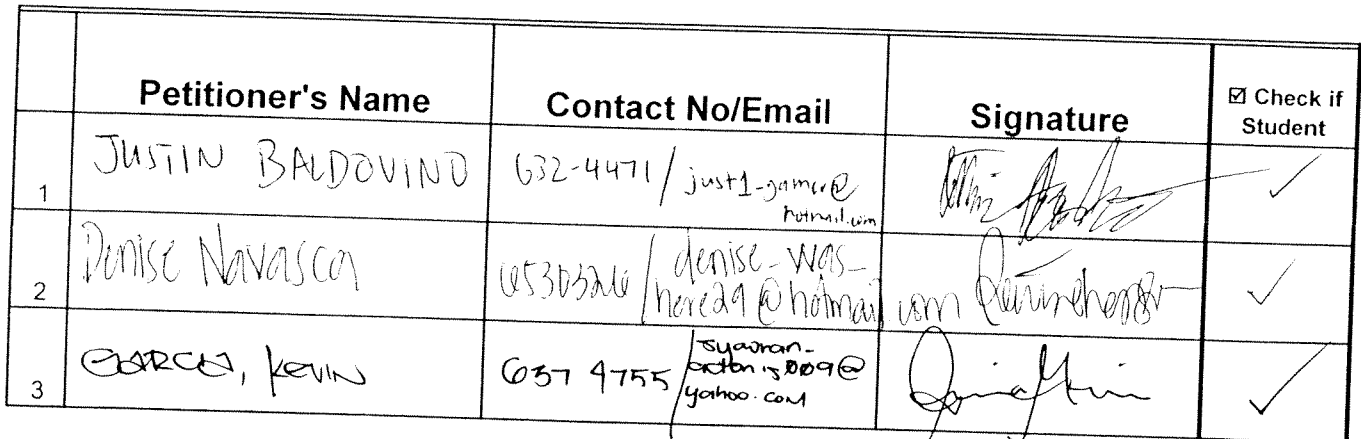 Petitioner's Name Contact No/Email Signature ☑ Check if Student
1 JUSTIN BALDOVINO 632-4471 / just1-gamer@hotmail.com ✓
2 Denise Navasca 6530326 / denise_was_here29@hotmail.com ✓
3 GARCIA, KEVIN 637 4755 / yahoo.com ✓